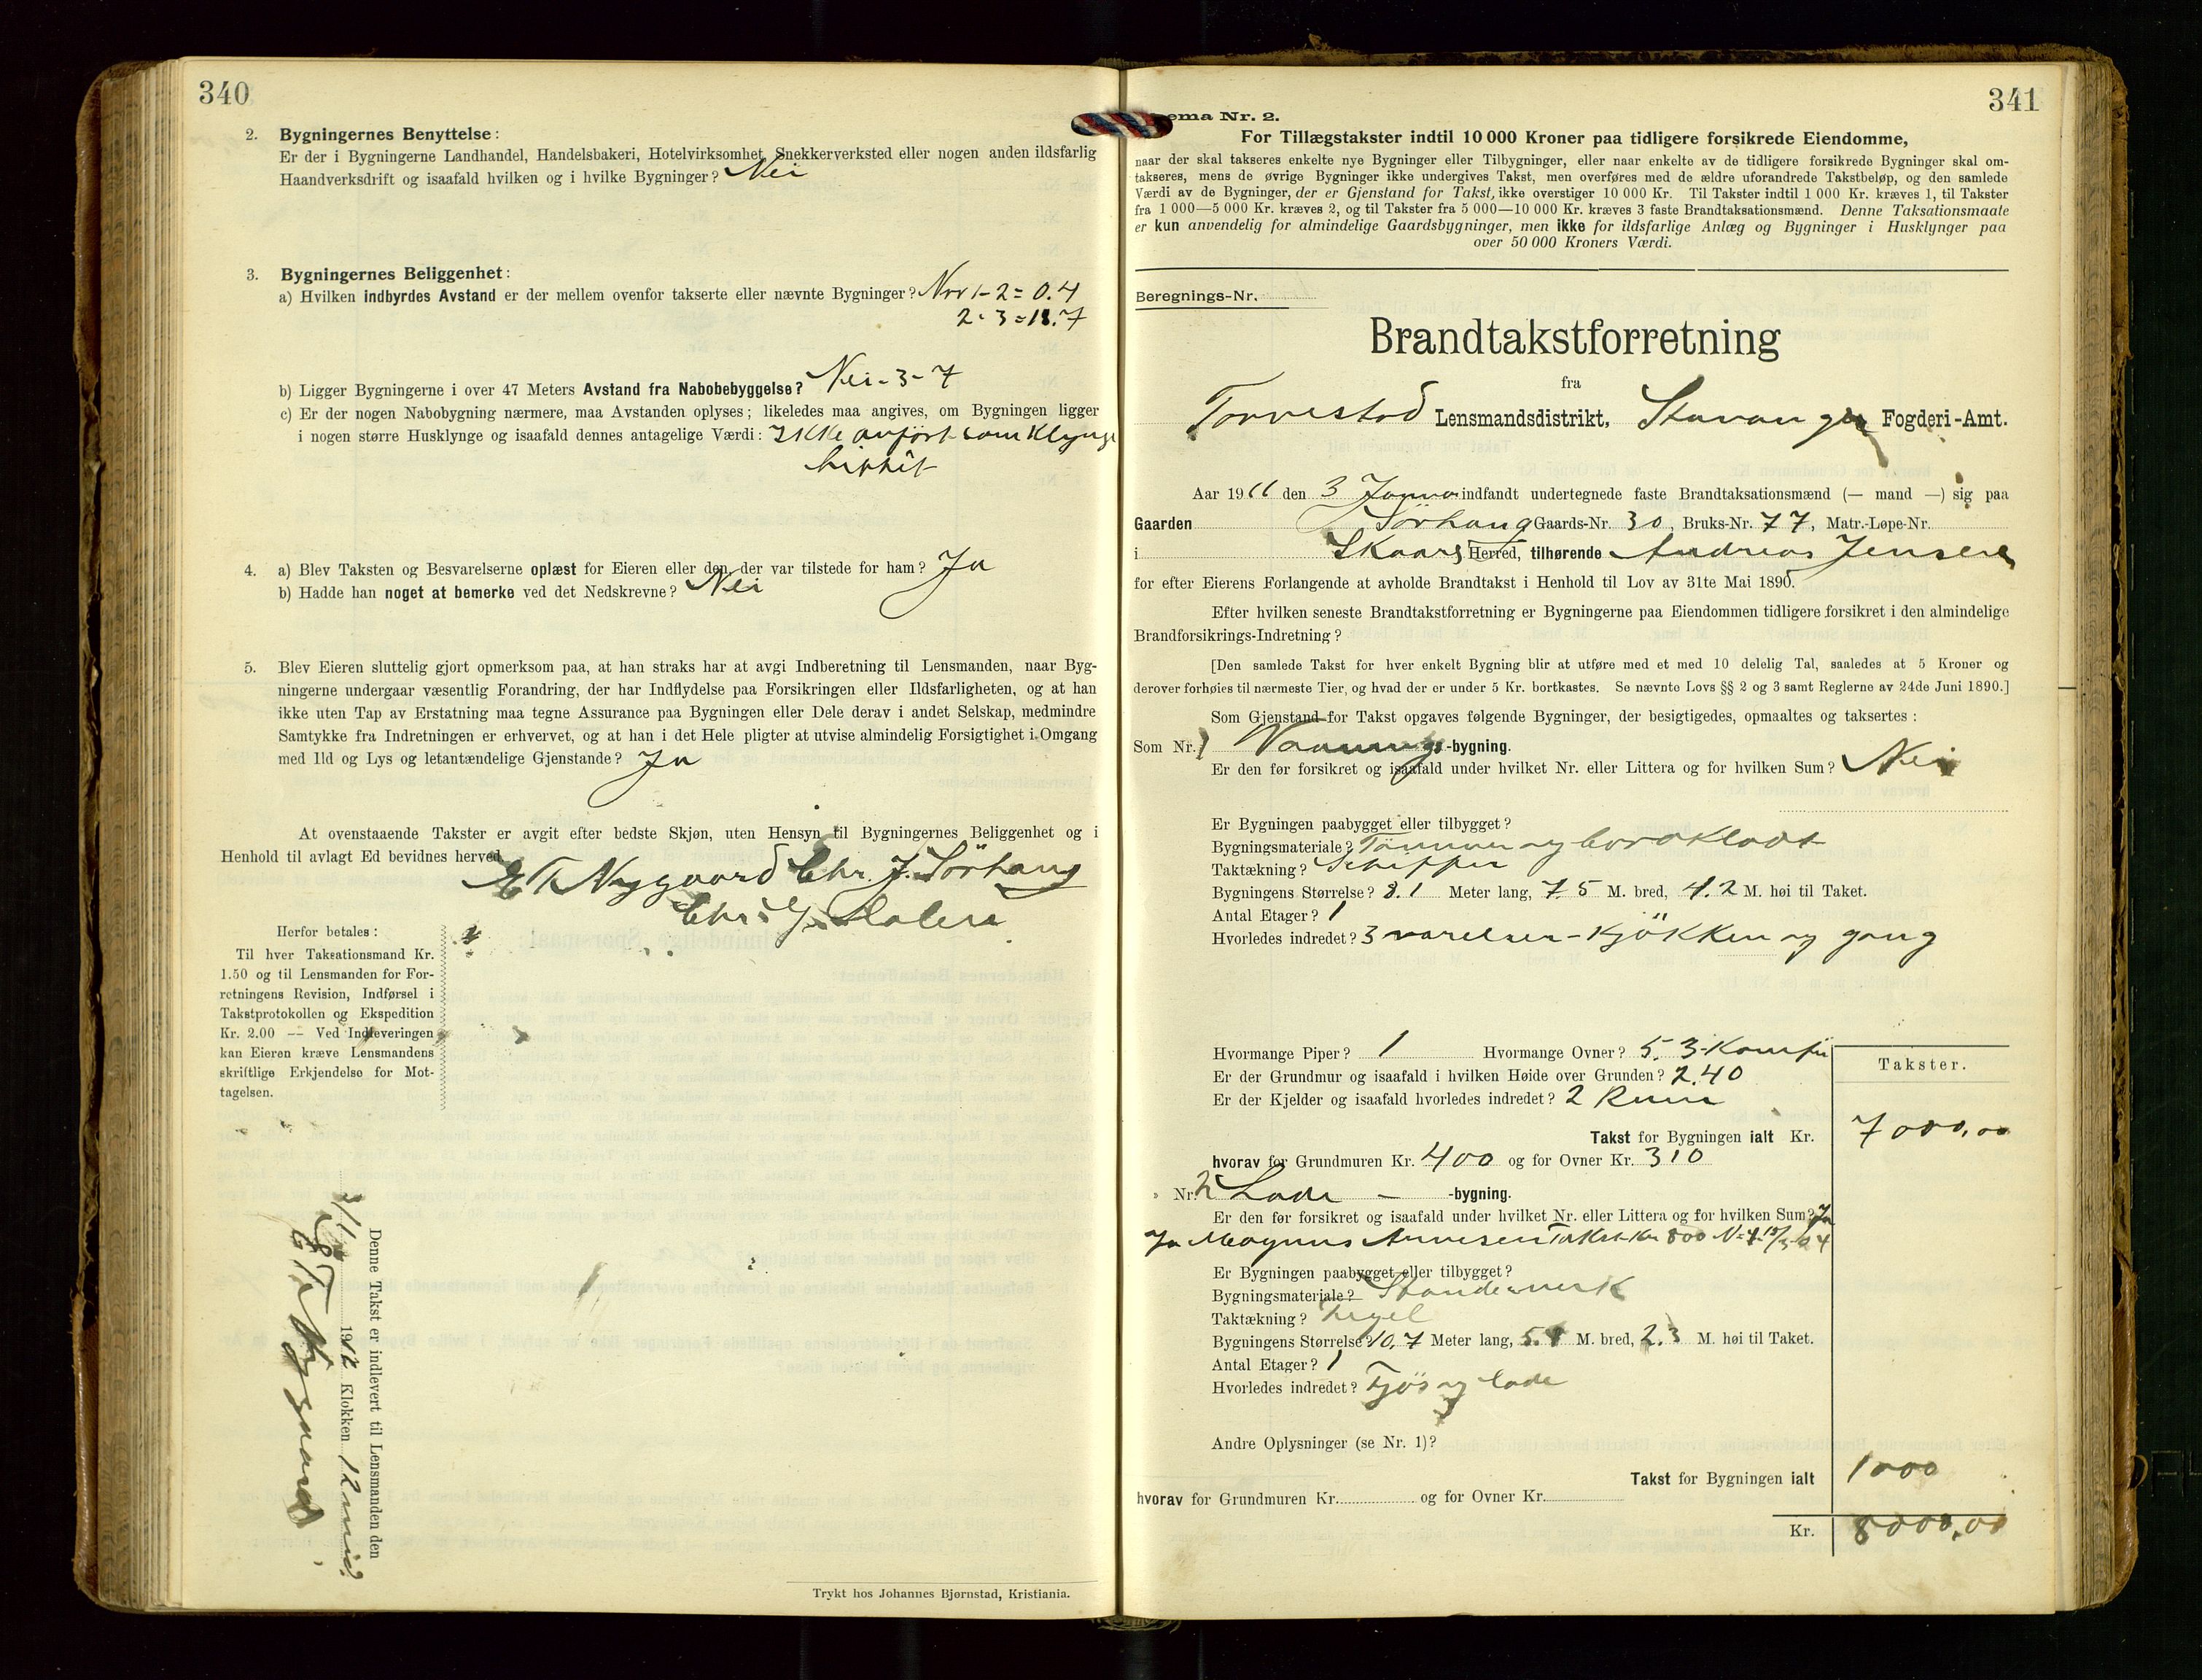 340
2. Bygningernes Benyttelse:
Er der i Bygningerne Landhandel, Handelsbakeri, Hotelvirksomhet, Snekkerverksted eller nogen anden ildsfarlig
Haandverksdrift og isaafald hvilken og i hvilke Bygninger? Nei
3. Bygningernes Beliggenhet:
a) Hvilken indbyrdes Avstand er der mellem ovenfor takserte eller nævnte Bygninger? Nr 1-2 = 0.4
2-3 = 18.7
b) Ligger Bygningerne i over 47 Meters Avstand fra Nabobebyggelse? Nei - 3-7
c) Er der nogen Nabobygning nærmere, maa Avstanden oplyses; likeledes maa angives, om Bygningen ligger
i nogen større Husklynge og isaafald dennes antagelige Værdi: Ikke anført som Klynge
4. a) Blev Taksten og Besvarelserne oplæst for Eieren eller den, der var tilstede for ham? Ja
b) Hadde han noget at bemerke ved det Nedskrevne? Nei
5. Blev Eieren sluttelig gjort opmerksom paa, at han straks har at avgi Indberetning til Lensmanden, naar Byg-
ningerne undergaar væsentlig Forandring, der har Indflydelse paa Forsikringen eller Ildsfarligheten, og at han
ikke uten Tap av Erstatning maa tegne Assurance paa Bygningen eller Dele derav i andet Selskap, medmindre
Samtykke fra Indretningen er erhvervet, og at han i det Hele pligter at utvise almindelig Forsigtighet i Omgang
med Ild og Lys og letantændelige Gjenstande? Ja
At ovenstaaende Takster er avgit efter bedste Skjøn, uten Hensyn til Bygningernes Beliggenhet og i
Henhold til avlagt Ed bevidnes herved
E T Nygaard Chr. J. Sörhaug
Herfor betales:
Til hver Taksationsmand Kr.
1.50 og til Lensmanden for For-
retningens Revision, Indførsel i
Takstprotokollen og Ekspedition
Kr. 2.00 — Ved Indleveringen
kan Eieren kræve Lensmandens
skriftlige Erkjendelse for Mot-
tagelsen.
Denne Takst er indlevert til Lensmanden den
1912 Klokken 12 mid.
E T Nygaard
Trykt hos Johannes Bjørnstad, Kristiania.
341
ema Nr. 2.
For Tillægstakster indtil 10 000 Kroner paa tidligere forsikrede Eiendomme,
naar der skal takseres enkelte nye Bygninger eller Tilbygninger, eller naar enkelte av de tidligere forsikrede Bygninger skal om-
takseres, mens de øvrige Bygninger ikke undergives Takst, men overføres med de ældre uforandrede Takstbeløp, og den samlede
Værdi av de Bygninger, der er Gjenstand for Takst, ikke overstiger 10 000 Kr. Til Takster indtil 1 000 Kr. kræves 1, til Takster
fra 1 000—5 000 Kr. kræves 2, og til Takster fra 5 000—10 000 Kr. kræves 3 faste Brandtaksationsmænd. Denne Taksationsmaate
er kun anvendelig for almindelige Gaardsbygninger, men ikke for ildsfarlige Anlæg og Bygninger i Husklynger paa
over 50 000 Kroners Værdi.
Beregnings-Nr.
Brandtakstforretning
fra
Torvestad Lensmandsdistrikt, Stavanger Fogderi-Amt.
Aar 1911 den 3 Januar indfandt undertegnede faste Brandtaksationsmænd (— mand —) sig paa
Gaarden Sörhaug Gaards-Nr. 30, Bruks-Nr. 77, Matr.-Løpe-Nr.
i Skaare Herred, tilhørende Andreas Jensen
for efter Eierens Forlangende at avholde Brandtakst i Henhold til Lov av 31te Mai 1890.
Efter hvilken seneste Brandtakstforretning er Bygningerne paa Eiendommen tidligere forsikret i den almindelige
Brandforsikrings-Indretning?
[Den samlede Takst for hver enkelt Bygning blir at utføre med et med 10 delelig Tal, saaledes at 5 Kroner og
derover forhøies til nærmeste Tier, og hvad der er under 5 Kr. bortkastes. Se nævnte Lovs §§ 2 og 3 samt Reglerne av 24de Juni 1890.]
Som Gjenstand for Takst opgaves følgende Bygninger, der besigtigedes, opmaaltes og taksertes:
Som Nr. 1 Vaanings-bygning.
Er den før forsikret og isaafald under hvilket Nr. eller Littera og for hvilken Sum? Nei
Er Bygningen paabygget eller tilbygget?
Bygningsmateriale? Tömmer og bordklædt
Taktækning? Schiffer
Bygningens Størrelse? 8.1 Meter lang, 7.5 M. bred, 4.2 M. høi til Taket.
Antal Etager? 1
Hvorledes indredet? 3 værelser - Kjökken og gang
Hvormange Piper? 1 Hvormange Ovner? 5. 3-Komfur
Er der Grundmur og isaafald i hvilken Høide over Grunden? 2.40
Er der Kjelder og isaafald hvorledes indredet? 2 Rum
Takster.
Takst for Bygningen ialt Kr. 7000,00
hvorav for Grundmuren Kr. 400 og for Ovner Kr. 310
" Nr. 2 Lade - -bygning.
Er den før forsikret og isaafald under hvilket Nr. eller Littera og for hvilken Sum? Ja
Ja Magnus Arnesen Takst Kr 800
Er Bygningen paabygget eller tilbygget?
Bygningsmateriale? Standerverk
Taktækning? Tegel
Bygningens Størrelse? 10.7 Meter lang, M. bred, 2.3 M. høi til Taket.
Antal Etager? 1
Hvorledes indredet? Fjös og lade
Andre Oplysninger (se Nr. 1)?
Takst for Bygningen ialt 1000
hvorav for Grundmuren Kr. og for Ovner Kr.
Kr. 8000,00